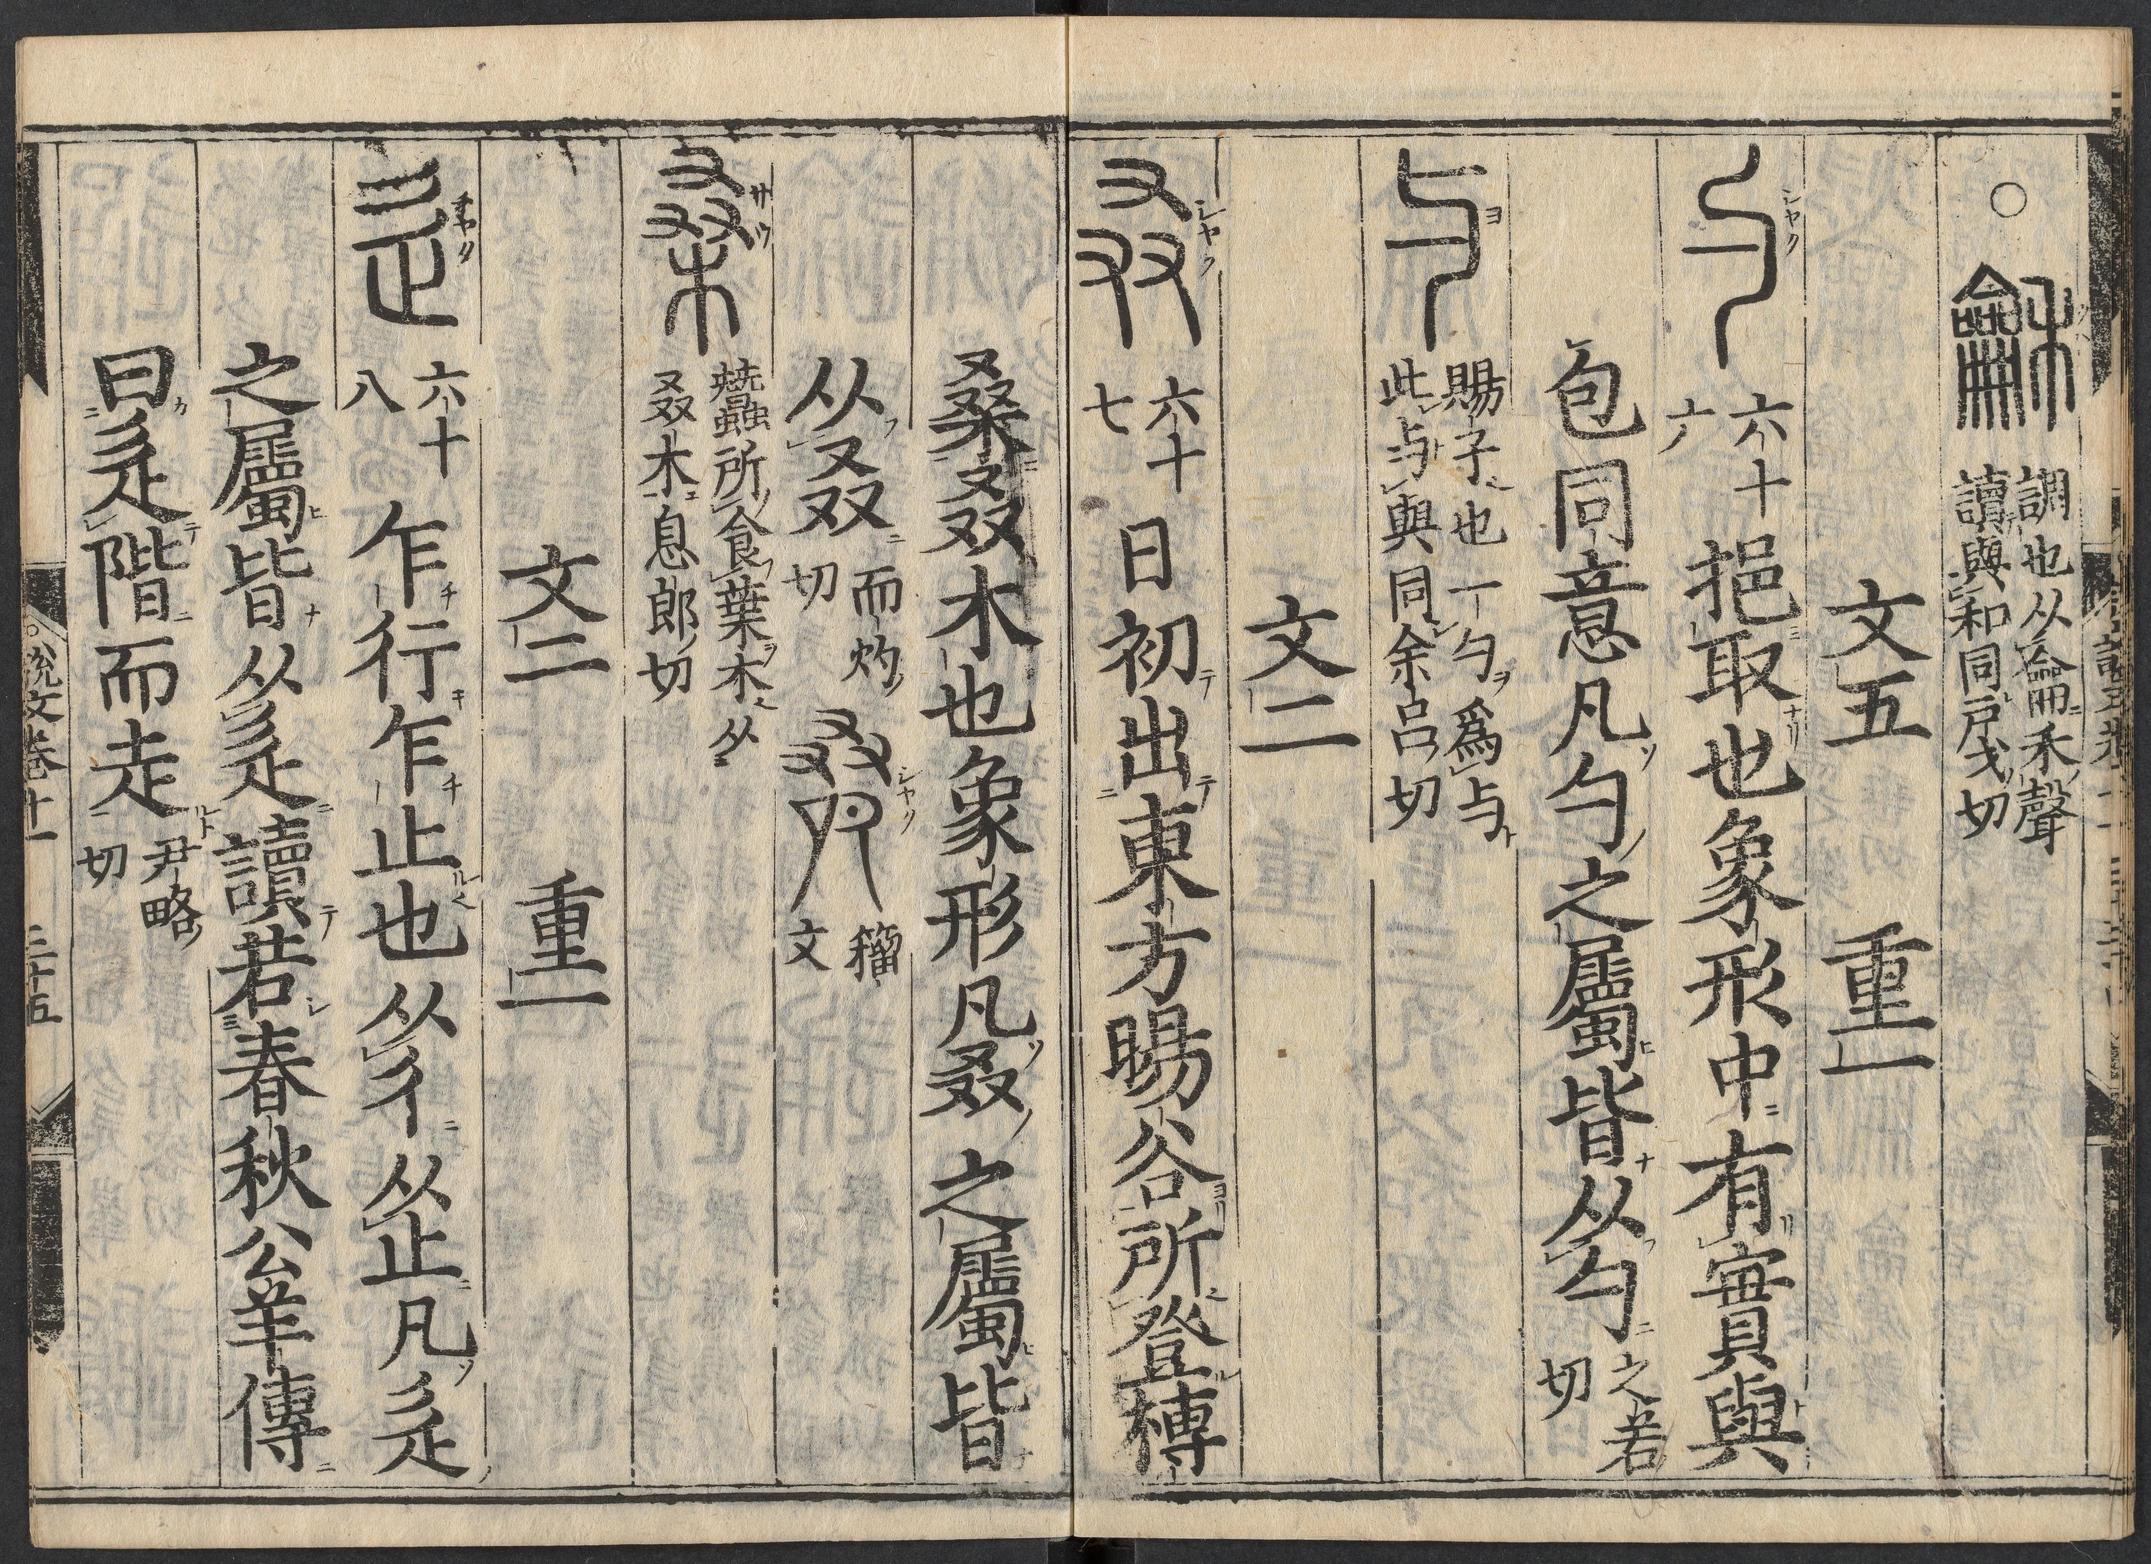 ○龢 調也从龠禾聲
讀與和同戸戈切
文五 重一
勺 六十六 挹取也象形中有實與
包同意凡勺之屬皆从勺 之若切
与 賜予也一勺爲与
此与與同余呂切
文二
叒 六十七 日初出東方暘谷所登榑
桑叒木也象形凡叒之屬皆
从叒 而灼切 籒文
桑 蠶所食葉木从
叒木息郎切
文二 重一
辵 六十八 乍行乍止也从彳从止凡辵
之屬皆从辵讀若春秋公羊傳
曰辵階而走 丑略切
說文卷十一 三十五